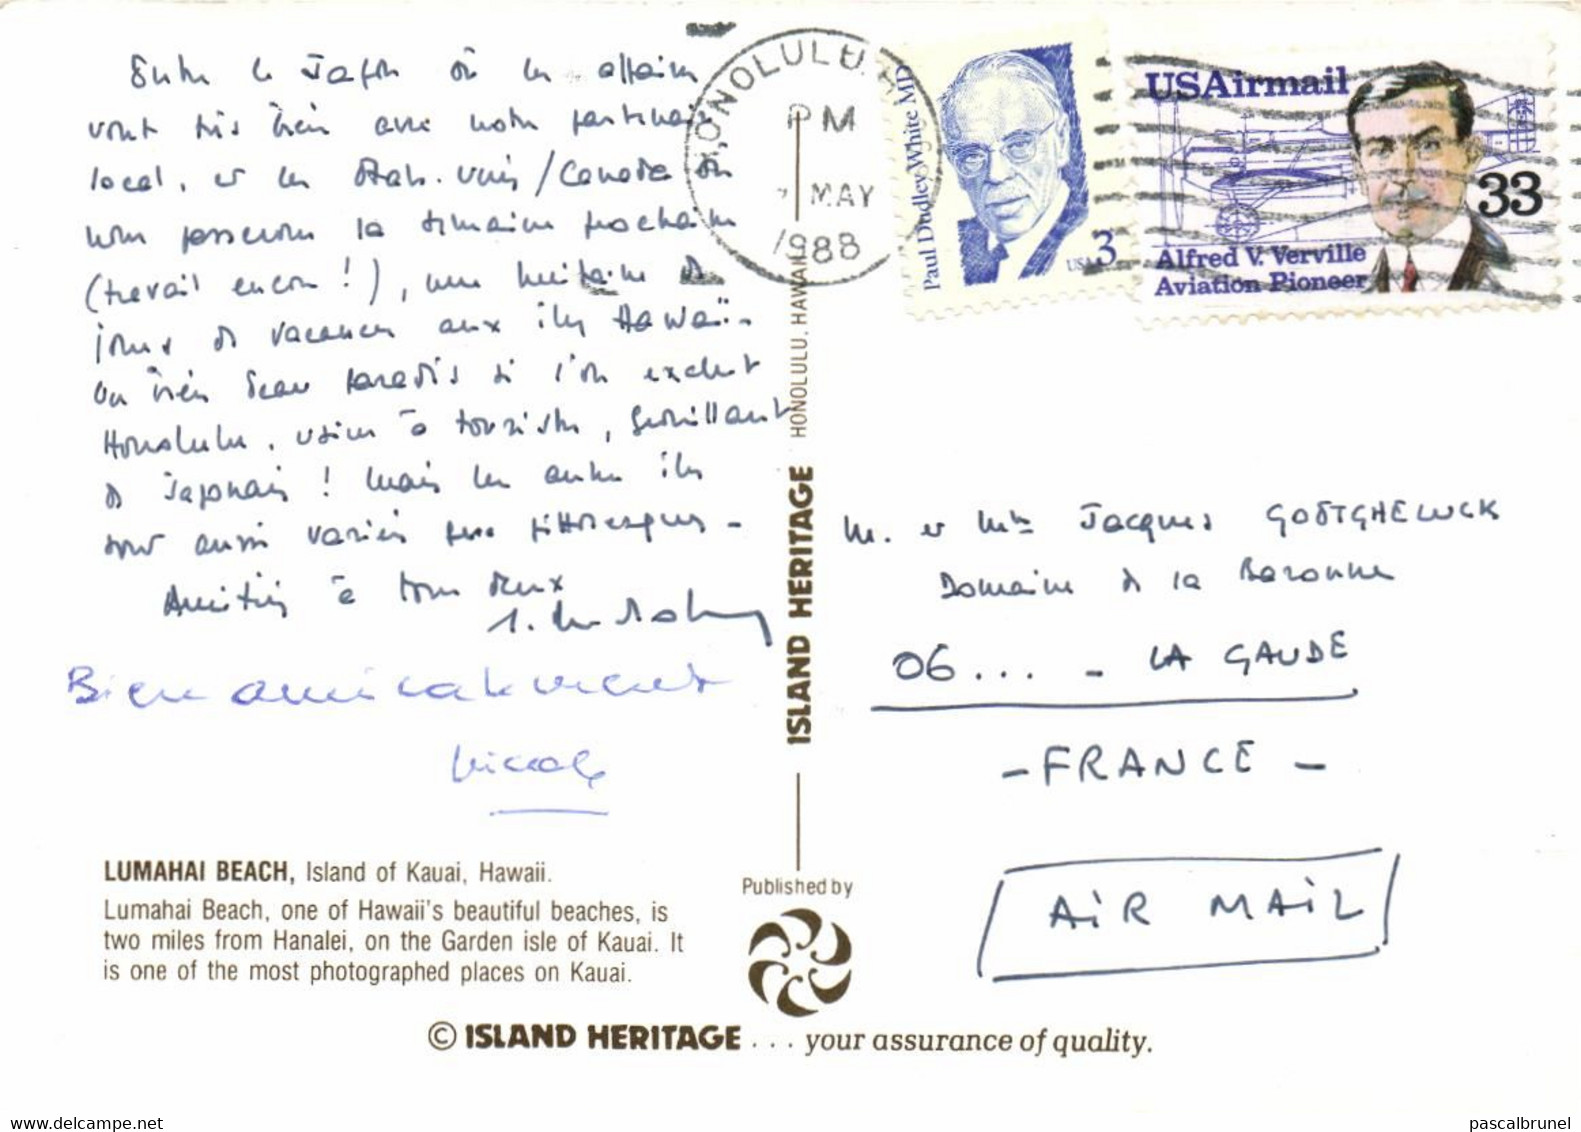 Entre le Japon où les affaires
vont très bien avec notre partenaire
local, et les Etats-Unis/Canada où
nous passerons la semaine prochaine
(travail encore !), une huitaine de
jours de vacances aux îles Hawaï.
Un bien beau paradis si l'on exclut
Honolulu, usine à touristes, grouillant
de Japonais ! Mais les autres îles
sont aussi variées que pittoresques -
Amitiés à tous deux
Bien amicalement
Nicole
LUMAHAI BEACH, Island of Kauai, Hawaii.
Lumahai Beach, one of Hawaii's beautiful beaches, is
two miles from Hanalei, on the Garden isle of Kauai. It
is one of the most photographed places on Kauai.
© ISLAND HERITAGE . . . your assurance of quality.
ISLAND HERITAGE HONOLULU, HAWAII
Published by
HONOLULU, H
PM
MAY
1988
Paul Dudley White MD
USA 3
USAirmail
33
Alfred V. Verville
Aviation Pioneer
M. et Mme Jacques GOETGHELUCK
Domaine de la Baronne
06... - LA GAUDE
- FRANCE -
AIR MAIL
pascalbrunel